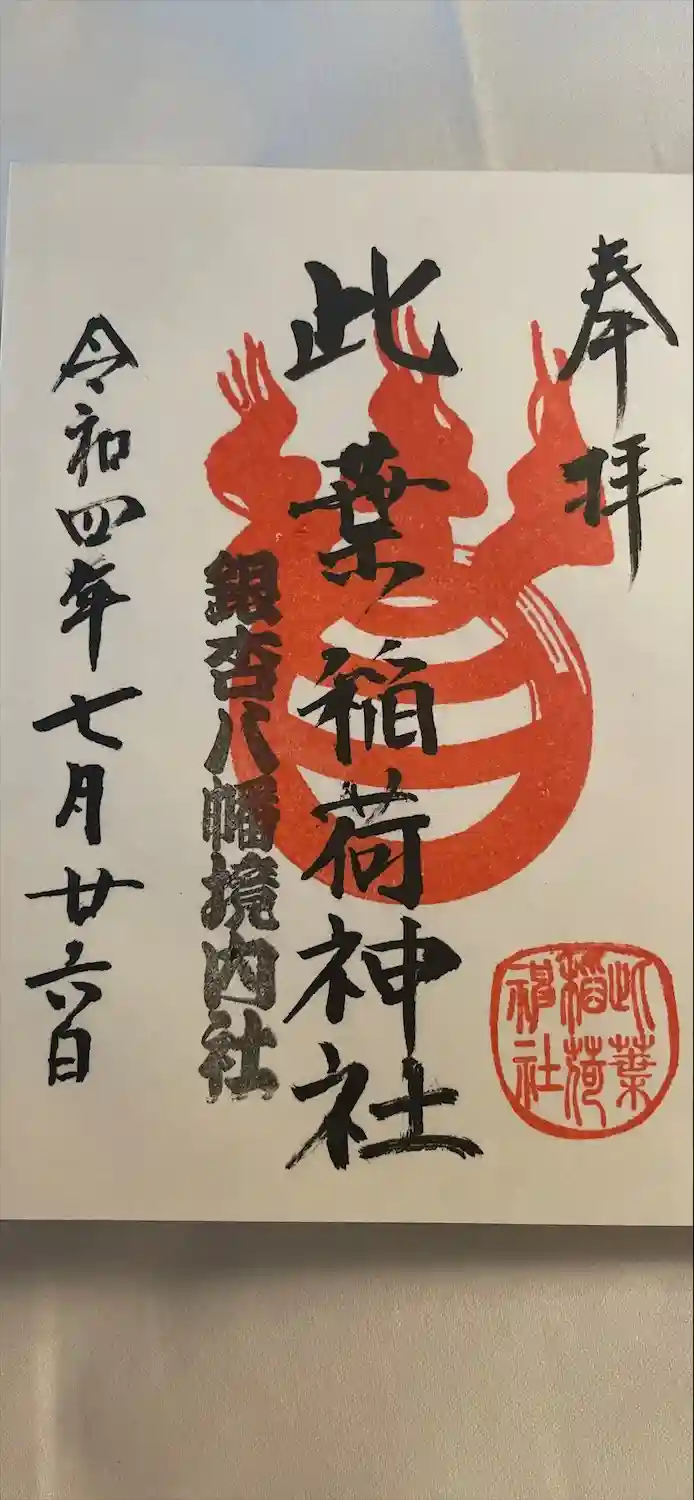 奉拝
此葉稲荷神社
銀杏八幡境内社
令和四年七月廿六日
此葉
稲荷
神社